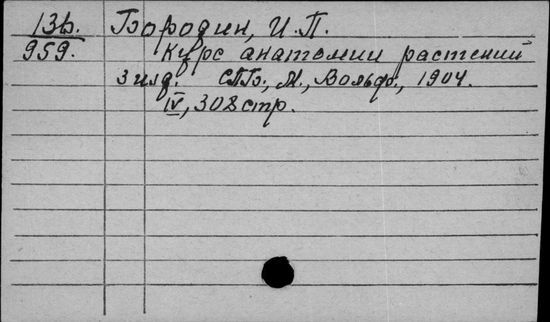 13в. Бородин, И.П.
959. Курс анатомии растений
3 изд. СПБ., М., Вольф., 1904.
IV, 308 стр.